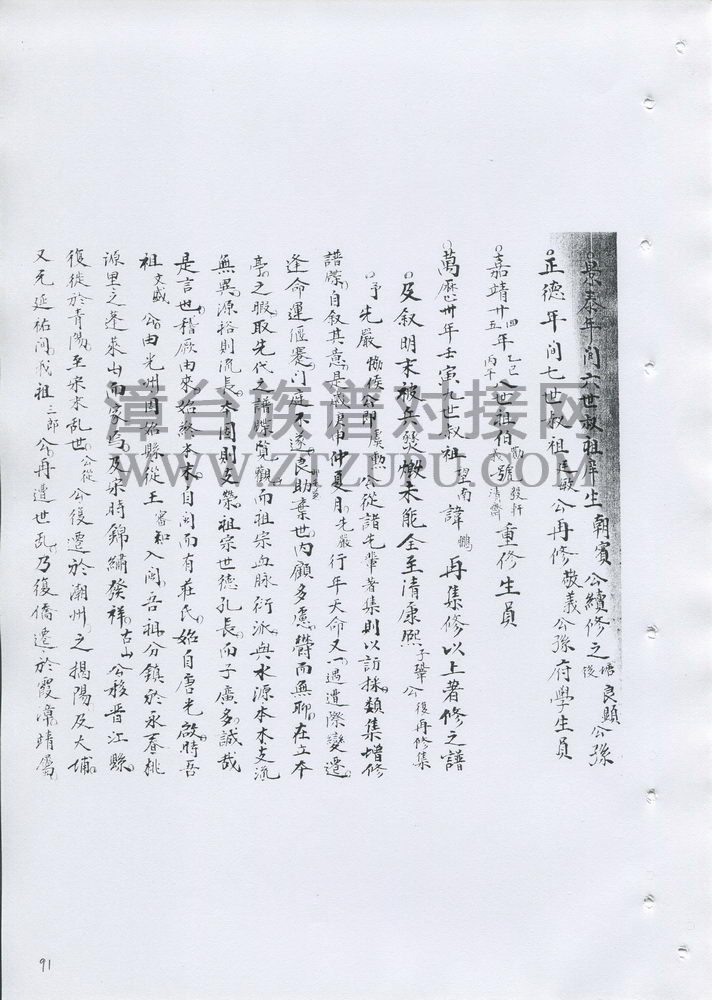 景泰年间六世叔祖庠生朝賓公續修之塘後良顯公孫
正德年间七世叔祖民敏公再修敬義公孫府學生員
嘉靖廿四五年乙巳丙午八世祖伯號毅軒清齋重修生員
萬曆卅年壬寅九世叔祖望南諱鵬再集修以上著修之譜
及叙明末被兵燹燬未能全至清康熙子鞏公後再修集
予先嚴慟候公即虞勲公從諸屯輩著集則以訪採類集增修
譜牒自叙其意是歲甲仲夏月先嚴行年天命又一遇遭際變遷
逢命運偃蹇门庭不遂良助棄世内顧多慮鬱而無聊在立本
亭之暇取先代之譜牒覧觀而祖宗血脉衍派與水源本木支流
無異源浴則流長本固則支榮祖宗世德孔長而子廣多誠哉
是言也稽厥由來始終本末自闽而有莊氏始自唐光啟時吾
祖文盛公由光州固始縣從王審知入闽吾祖分鎮於永春桃
源里之蓬萊山而家焉及宋時錦繡發祥古山公移晋江縣
復徙於青陽至宋末乱世公從公復遷於潮州之揭陽及大埔
又元延祐间我祖三郎公再遭世乱乃復僑遷於霞漳靖屬
漳台族谱对接网
WWW.ZTZUPU.COM
91